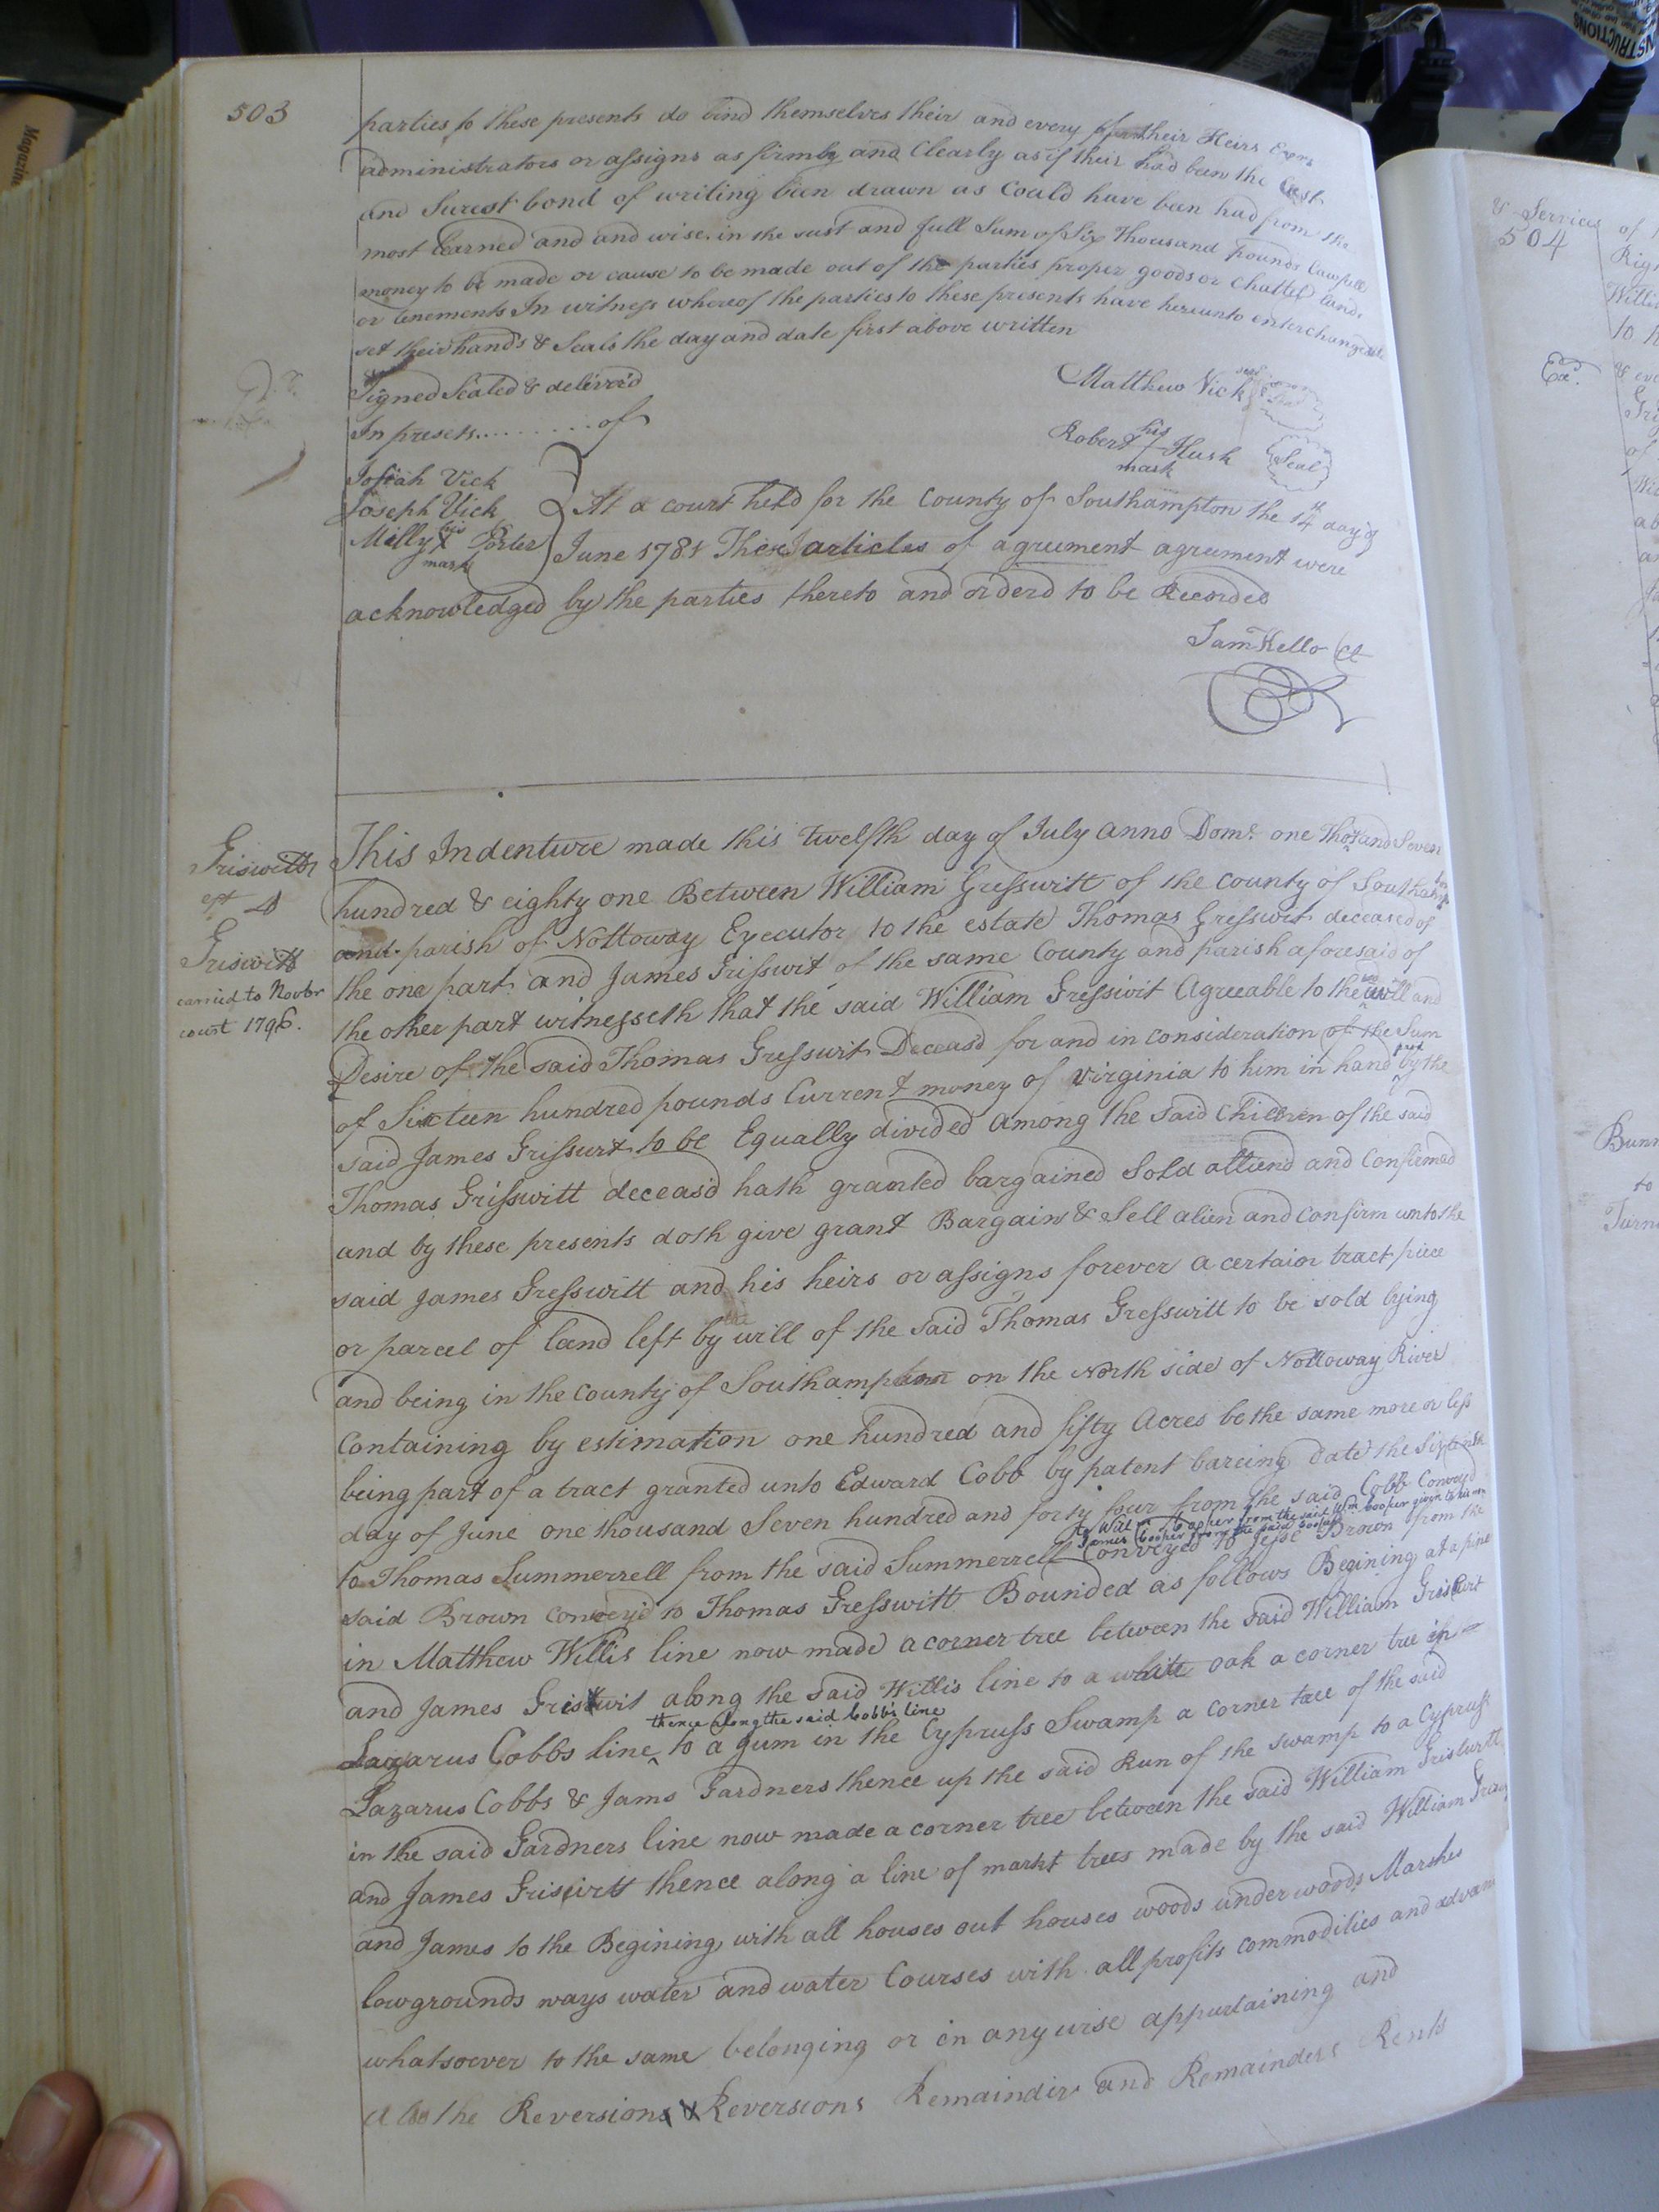 503
parties to these presents do bind themselves their and every of their Heirs Exors
administrators or assigns as firmly and Clearly as if their had been the best
and Surest bond of writing been drawn as Could have been had from the
most Learned and and wise in the sust and full Sum of Six Thousand pounds Lawfull
money to be made or cause to be made out of the parties proper goods or Chattel lands
or tenements In witness whereof the parties to these presents have hereunto enterchangeable
set their hands & Seals the day and date first above written
Signed Sealed & deliver'd
In presets.........of
Matthew Vick seal
Robert his Hush Seal
mark
Josiah Vick
Joseph Vick
Milly his Porter
mark
At a court held for the County of Southampton the 14th day of
June 1781 These articles of agrument agrument were
acknowledged by the parties thereto and orderd to be Recorded
Sam Kello Ct
Grisewitt
est
Griswitt
carried to Novbr
court 1796.
This Indenture made this Twelfth day of July Anno Dom: one Thosand Seven
hundred & eighty one Between William Gresswitt of the County of Southampton
and parish of Nottoway Executor to the estate Thomas Gresswit deceased of
the one part and James Grisswit of the same County and parish aforesaid of
the other part witnesseth that the said William Gresswit Agreeable to the will and
Desire of the said Thomas Gresswit Deceasd for and in consideration of the Sum
of Sixteen hundred pounds Current money of Virginia to him in hand paid by the
said James Grisswit to be Equally divided among the said Children of the said
Thomas Grisswitt deceasd hath granted bargained Sold alliend and Confirmed
and by these presents doth give grant Bargain & Sell alien and confirm unto the
said James Gresswitt and his heirs or assigns forever a certain tract piece
or parcel of land left by the will of the said Thomas Gresswitt to be sold lying
and being in the county of Southampton on the North side of Nottoway River
Containing by estimation one hundred and fifty Acres be the same more or less
being part of a tract granted unto Edward Cobb by patent bareing Date the Sixteenth
day of June one thousand Seven hundred and forty four from the said Cobb Conveyd
to Wm Cooper from the said Wm Cooper given to his son
James Cooper from the said Cooper
to Thomas Summerrell from the said Summerrell Conveyed to Jesse Brown from the
said Brown conveyd to Thomas Gresswitt Bounded as follows Begining at a pine
in Matthew Willis line now made a corner tree between the said William Griswit
and James Griswit along the said Willis line to a white oak a corner tree in
thence along the said Cobb's line
Lazarus Cobbs line ^ to a gum in the Cypruss Swamp a corner tree of the said
Lazarus Cobbs & Jams Gardners thence up the said Run of the swamp to a Cypruss
in the said Gardners line now made a corner tree between the said William Griswitt
and James Griswitt thence along a line of markt trees made by the said William
and James to the Begining with all houses out houses woods under woods Marshes
lowgrounds ways water and water Courses with all profits commodities and advan
whatsoever to the same belonging or in any wise appurtaining and
also the Reversions & Reversions Remainder and Remainders Rents
& Services of
504
Rig
Willi
to
Exd.
Bun
to
Turn